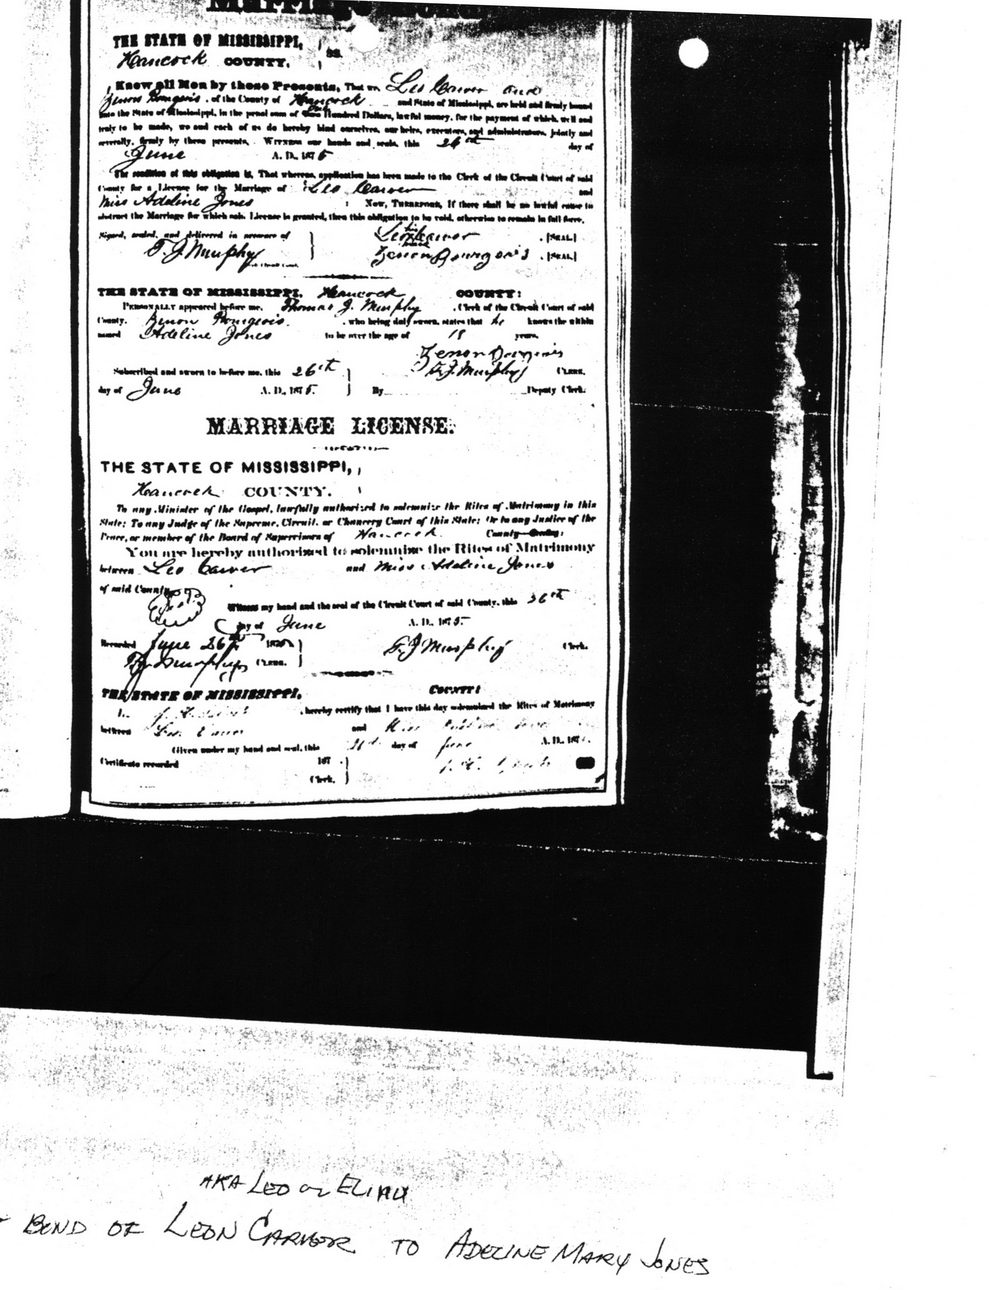 THE STATE OF MISSISSIPPI, } ss.
Hancock COUNTY.
Know all Men by these Presents, That we, Leo Carver and
Zenon Bourgeois, of the County of Hancock and State of Mississippi, are held and firmly bound
unto the State of Mississippi, in the penal sum of Hundred Dollars, lawful money, for the payment of which, well and
truly to be made, we and each of us do hereby bind ourselves, our heirs, executors, and administrators, jointly and
severally, firmly by these presents. WITNESS our hands and seals, this 26th day of
June A. D., 1875
The condition of this obligation is, That whereas, application has been made to the Clerk of the Circuit Court of said
County for a License for the Marriage of Leo Carver and
Miss Adeline Jones : NOW, THEREFORE, If there shall be no lawful cause to
obstruct the Marriage for which said License is granted, then this obligation to be void, otherwise to remain in full force.
Signed, sealed, and delivered in presence of Leo his mark Carver [SEAL]
T. J. Murphy Zenon Bourgeois [SEAL]
THE STATE OF MISSISSIPPI, Hancock COUNTY:
PERSONALLY appeared before me, Thomas J. Murphy, Clerk of the Circuit Court of said
County, Zenon Bourgeois, who being duly sworn, states that he knows the within
named Adeline Jones to be over the age of 18 years.
Zenon Bourgeois
Subscribed and sworn to before me, this 26th T. J. Murphy CLERK.
day of June A. D., 1875. By Deputy Clerk.
MARRIAGE LICENSE.
THE STATE OF MISSISSIPPI,
Hancock COUNTY.
To any Minister of the Gospel, lawfully authorized to solemnize the Rites of Matrimony in this
State; To any Judge of the Supreme, Circuit, or Chancery Court of this State; Or to any Justice of the
Peace, or member of the Board of Supervisors of Hancock County
You are hereby authorized to solemnize the Rites of Matrimony
between Leo Carver and Miss Adeline Jones
of said County
Witness my hand and the seal of the Circuit Court of said County, this 26th
day of June A. D., 1875.
Recorded June 26th 1875 T. J. Murphy Clerk.
T. J. Murphy CLERK.
THE STATE OF MISSISSIPPI, COUNTY:
I, hereby certify that I have this day solemnized the Rites of Matrimony
between Leo Carver and Miss
Given under my hand and seal, this day of June A. D., 187
Certificate recorded 187
Clerk.
AKA LEO or ELIAH
BOND OF LEON CARVER TO ADELINE MARY JONES